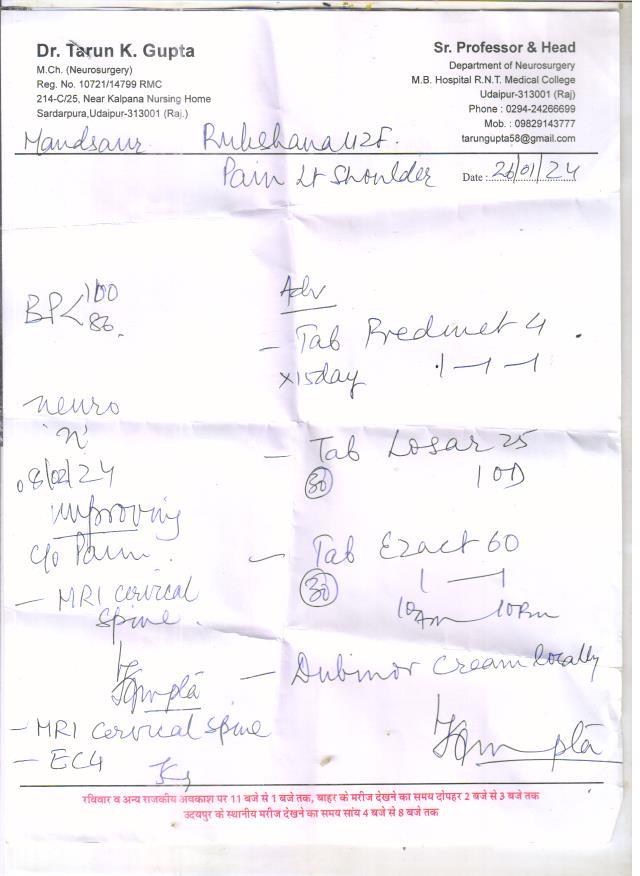 Dr. Tarun K. Gupta
M.Ch. (Neurosurgery)
Reg. No. 10721/14799 RMC
214-C/25, Near Kalpana Nursing Home
Sardarpura,Udaipur-313001 (Raj.)
Sr. Professor & Head
Department of Neurosurgery
M.B. Hospital R.N.T. Medical College
Udaipur-313001 (Raj)
Phone : 0294-24266699
Mob. : 09829143777
tarungupta58@gmail.com
Mandsaur Rukshana 42F.
Pain Lt Shoulder
Date : 20/01/24
BP <
100
86
neuro
'N'
08/02/24
improving
c/o Pain.
- MRI cervical
spine.
Gupta
- MRI cervical spine
- ECG
Adv
- Tab Predmet 4
x15day 1-1-1
- Tab Losar 25
30 1 OD
- Tab Ezact 60
30 1 - 1
10Am 10Pm
- Dubinor Cream locally
Gupta
रविवार व अन्य राजकीय अवकाश पर 11 बजे से 1 बजे तक, बाहर के मरीज देखने का समय दोपहर 2 बजे से 3 बजे तक
उदयपुर के स्थानीय मरीज देखने का समय सांय 4 बजे से 8 बजे तक